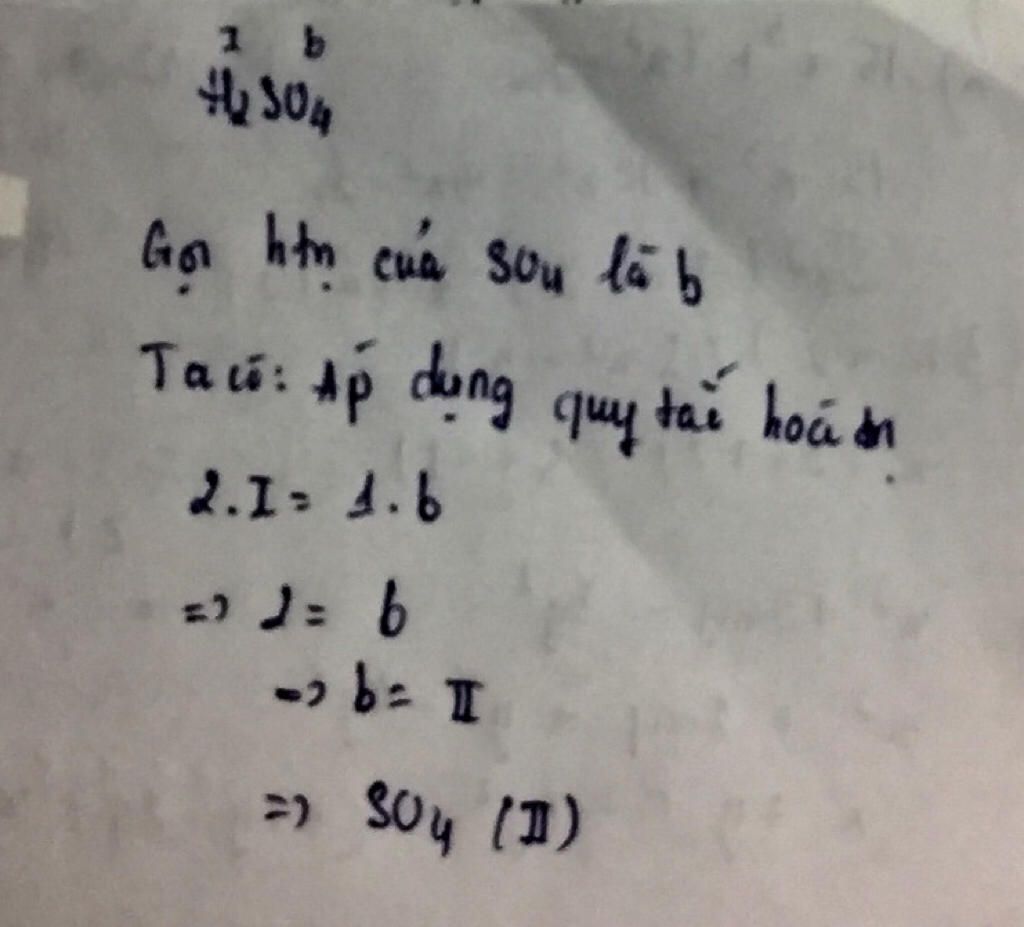 I b
H₂SO₄
Gọi htrị của SO₄ là b
Ta có: Áp dụng quy tắc hoá trị
2.I = 1.b
=> 2 = b
-> b = II
=> SO₄ (II)